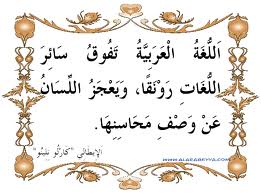 اللُّغَةُ الْعَرَبِيَّةُ تَفُوقُ سَائِرَ
اللُّغَاتِ رَوْنَقًا، وَيَعْجَزُ اللِّسَانُ
عَنْ وَصْفِ مَحَاسِنِهَا.
الإيطالي "كارلو نلينو"
WWW.ALARABEYYA.COM